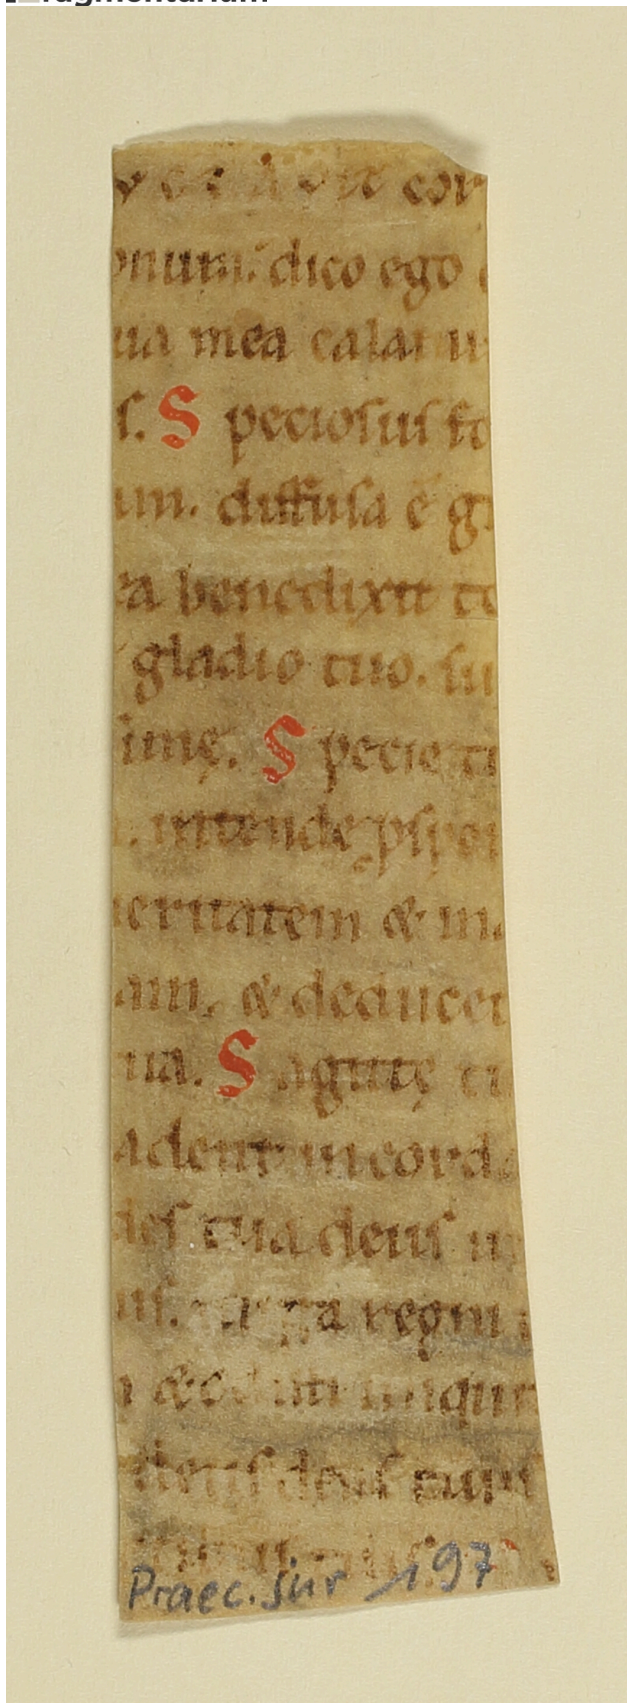 cor
onum. dico ego
ua mea calamu
s. Speciosus fo
um. diffusa ē gr
ea benedixit te
gladio tuo. su
imę. Specie tu
. intende pspe
ueritatem & m
am. & deducet
tua. Sagittę tu
adent in cord
des tua deus in
us. uirga regni
& odisti iniqui
deus deus tuus
Praec. sur 197